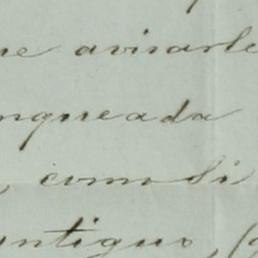 ue avisarle
nqueada
, como si
antiguo, (